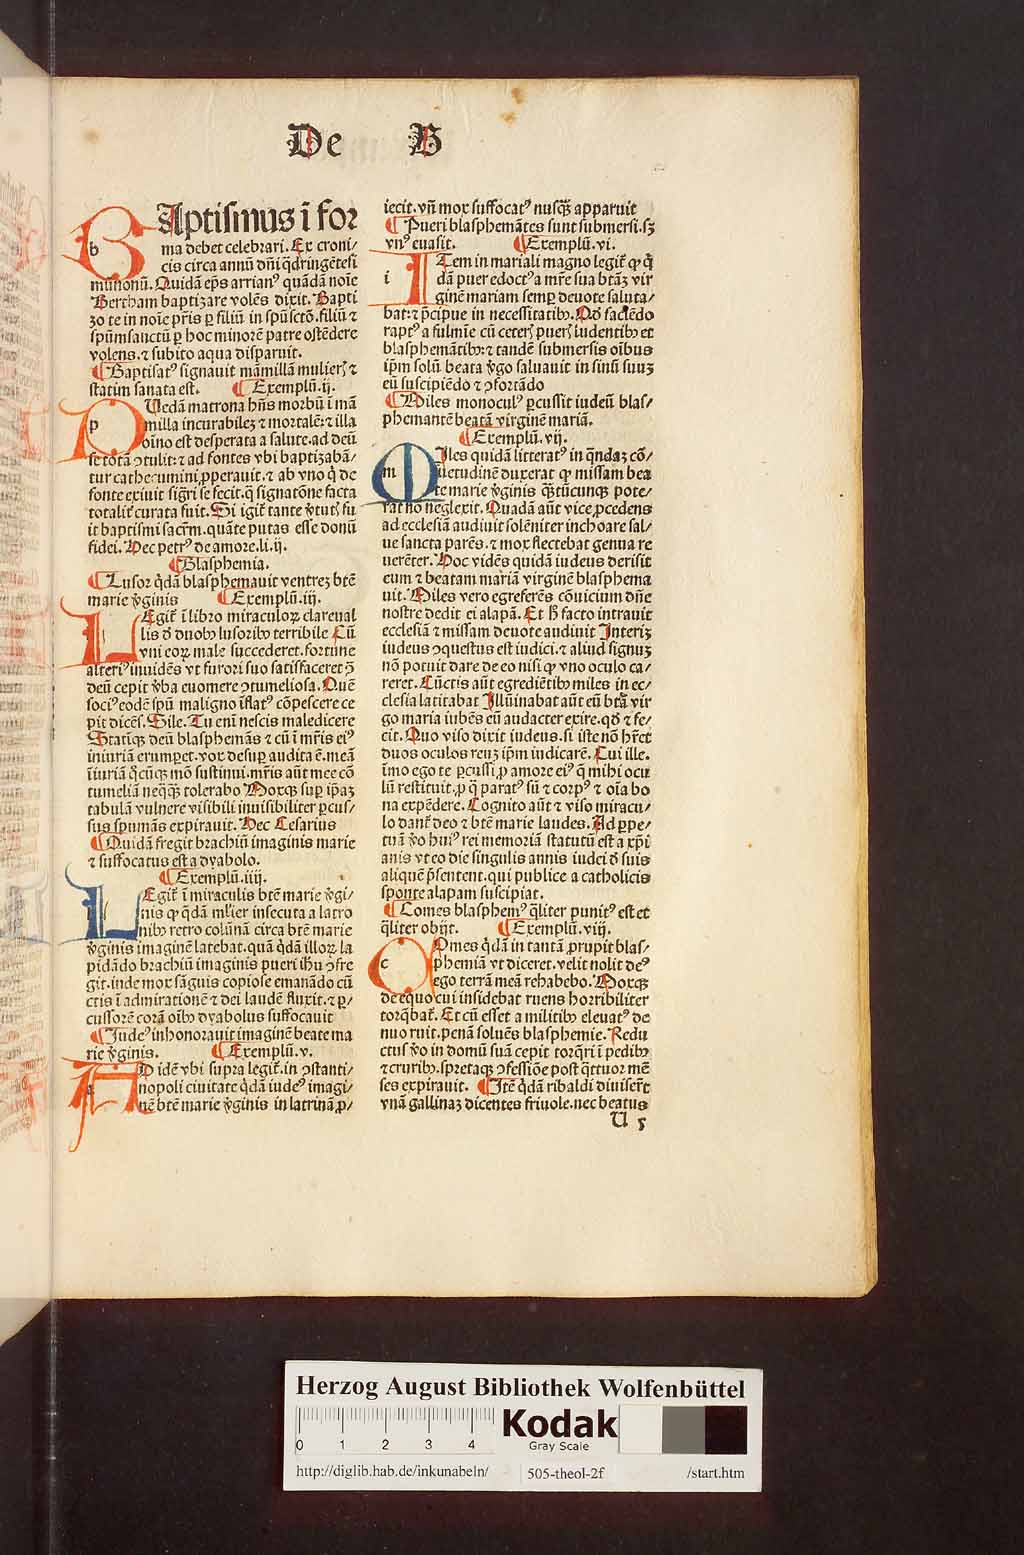 De B
BAptismus ī for
ma debet celebrari. Ex croni/
cis circa annū dn̄i q̄dringētesi
mūnonū. Quidā ep̄s arrianꝰ quādā noīe
Bertham baptizare volēs dixit. Bapti
zo te in noīe pr̄is ꝑ filiū in spūsctō. filiū ⁊
spūmsanctū ꝑ hoc minorē patre ostēdere
volens. ⁊ subito aqua disparuit.
¶ Baptisatꝰ signauit māmillā mulierꝭ ⁊
statim sanata est. ¶ Exemplū .ij.
QUedā matrona hn̄s morbū ī mā
milla incurabilez ⁊ mortalē: ⁊ illa
oīno est desperata a salute. ad deū
se totā ꝯtulit: ⁊ ad fontes vbi baptizabā/
tur cathecumini ꝓperauit. ⁊ ab vno q̄ de
fonte exiuit sigr̄i se fecit. q̄ signatōne facta
totalit̄ curata fuit. Si igit̄ tante v̓tutꝭ fu
it baptismi sacr̄m. quāte putas esse donū
fidei. Hec petrꝰ de amore. li. ij.
¶ Blasphemia.
¶ Lusor q̄dā blasphemauit ventrez btē
marie v̓ginis ¶ Exemplū .iij.
LEgit̄ ī libro miraculoꝝ clareual
lis d̄ duobꝫ lusoribꝫ terribile Cū
vni eoꝝ male succederet. fortune
alteriꝰ inuidēs vt furori suo satisfaceret ꝯ̄
deū cepit v̓ba euomere ꝯtumeliosa. Quē
sociꝰ eodē spū maligno īflatꝰ cōpescere ce
pit dicēs. Sile. Tu enī nescis maledicere
Statīqꝫ deū blasphemās ⁊ cū ī mr̄is eiꝰ
iniuriā erumꝑet. vox desuꝑ audita ē. meā
īiuriā q̄cūqꝫ mō sustinui. mr̄is aūt mee cō
tumeliā neq̄qꝫ tolerabo Moxqꝫ suꝑ ip̄az
tabulā vulnere visibili inuisibiliter ꝑcus/
sus spumās expirauit. Hec Cesarius
¶ Quidā fregit brachiū imaginis marie
⁊ suffocatus est a dyabolo.
¶ Exemplū .iiij.
LEgit̄ ī miraculis btē marie v̓gi/
nis ꝙ q̄dā ml̓ier insecuta a latro
nibꝫ retro colūnā circa btē marie
v̓ginis imaginē latebat. quā q̄dā illoꝝ la
pidādo brachiū imaginis pueri ih̄u ꝯfre
git. inde mox sāguis copiose emanādo cū
ctis ī admirationē ⁊ dei laudē fluxit. ⁊ ꝑ/
cussorē corā oībꝫ dyabolus suffocauit
¶ Iudeꝰ inhonorauit imaginē beate ma
rie v̓ginis. ¶ Exemplū .v.
AD idē vbi supra legit̄. in ꝯstanti/
nopoli ciuitate q̄dā iudeꝰ imagi/
nē btē marie v̓ginis in latrinā ꝓ/
iecit. vn̄ mox suffocatꝰ nusq̄ꝫ apparuit
¶ Pueri blasphemātes sunt submersi. sꝫ
vnꝰ euasit. ¶ Exemplū .vi.
ITem in mariali magno legit̄ ꝙ q̄
dā puer edoctꝰ a mr̄e sua btāz vir
ginē mariam semꝑ deuote saluta/
bat: ⁊ p̄cipue in necessitatibꝫ. Qd̓ faciēdo
raptꝰ a fulmīe cū ceterꝭ puerꝭ iudentibꝫ et
blasphemātibꝫ: ⁊ tandē submersis oībus
ip̄m solū beata v̓go saluauit in sinū suuz
eū suscipiēdo ⁊ ꝯfortādo
¶ Miles monoculꝰ ꝑcussit iudeū blas/
phemantē beatā virginē mariā.
¶ Exemplū .vij.
MIles quidā litteratꝰ in q̄ndaz cō/
suetudinē duxerat ꝙ missam bea
te marie v̓ginis q̄ntūcunqꝫ pote/
rat nō neglexit. Quadā aūt vice ꝓcedens
ad ecclesiā audiuit solēniter inchoare sal/
ue sancta parēs. ⁊ mox flectebat genua re
uerēter. Hoc vidēs quidā iudeus derisit
eum ⁊ beatam mariā virginē blasphema
uit. Miles vero egreferēs cōuicium dn̄e
nostre dedit ei alapā. Et h̄ facto intrauit
ecclesiā ⁊ missam deuote audiuit Interiz
iudeus ꝯquestus est iudici. ⁊ aliud signuz
nō potuit dare de eo nisi ꝙ vno oculo ca/
reret. Cūctis aūt egrediētibꝫ miles in ec/
clesia latitabat Illūinabat aūt eū btā vir
go maria iubēs eū audacter exire. qd̓ ⁊ fe/
cit. Quo viso dixit iudeus. si iste nō hr̄et
duos oculos reuz ip̄m iudicarē. Cui ille.
īmo ego te ꝑcussi ꝓ amore eiꝰ q̄ mihi ocu
lū restituit. ꝓ q̄ paratꝰ sū ⁊ corpꝰ ⁊ oīa bo
na expēdere. Cognito aūt ⁊ viso miracu/
lo dant̄ deo ⁊ btē marie laudes. Ad ꝑpe/
tuā v̓o huiꝰ rei memoriā statutū est a xp̄i
anis vt eo die singulis annis iudei d̄ suis
aliquē p̄sentent. qui publice a catholicis
sponte alapam suscipiat.
¶ Comes blasphemꝰ q̄liter punitꝰ est et
q̄liter obijt. ¶ Exemplū .viij.
COmes q̄dā in tantā ꝓrupit blas/
phemiā vt diceret. velit nolit deꝰ
ego terrā meā rehabebo. Moxqꝫ
de equo cui insidebat ruens horribiliter
torq̄bat̄. Et cū esset a militibꝫ eleuatꝰ de
nuo ruit. penā soluēs blasphemie. Redu
ctus v̓o in domū suā cepit torq̄ri ī pedibꝫ
⁊ cruribꝫ. spretaqꝫ ꝯfessiōe post q̄ttuor mē
ses expirauit. ¶ Itē q̄dā ribaldi diuiserūt
vnā gallinaz dicentes friuole. nec beatus
U 5
b
p
i
m
c
a
Herzog August Bibliothek Wolfenbüttel
0 1 2 3 4
Kodak
Gray Scale
http://diglib.hab.de/inkunabeln/ 505-theol-2f /start.htm